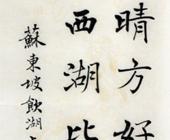 晴方好
西湖比
蘇東坡飲湖